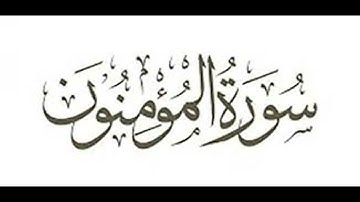 سُورَةُ المُؤْمِنُون